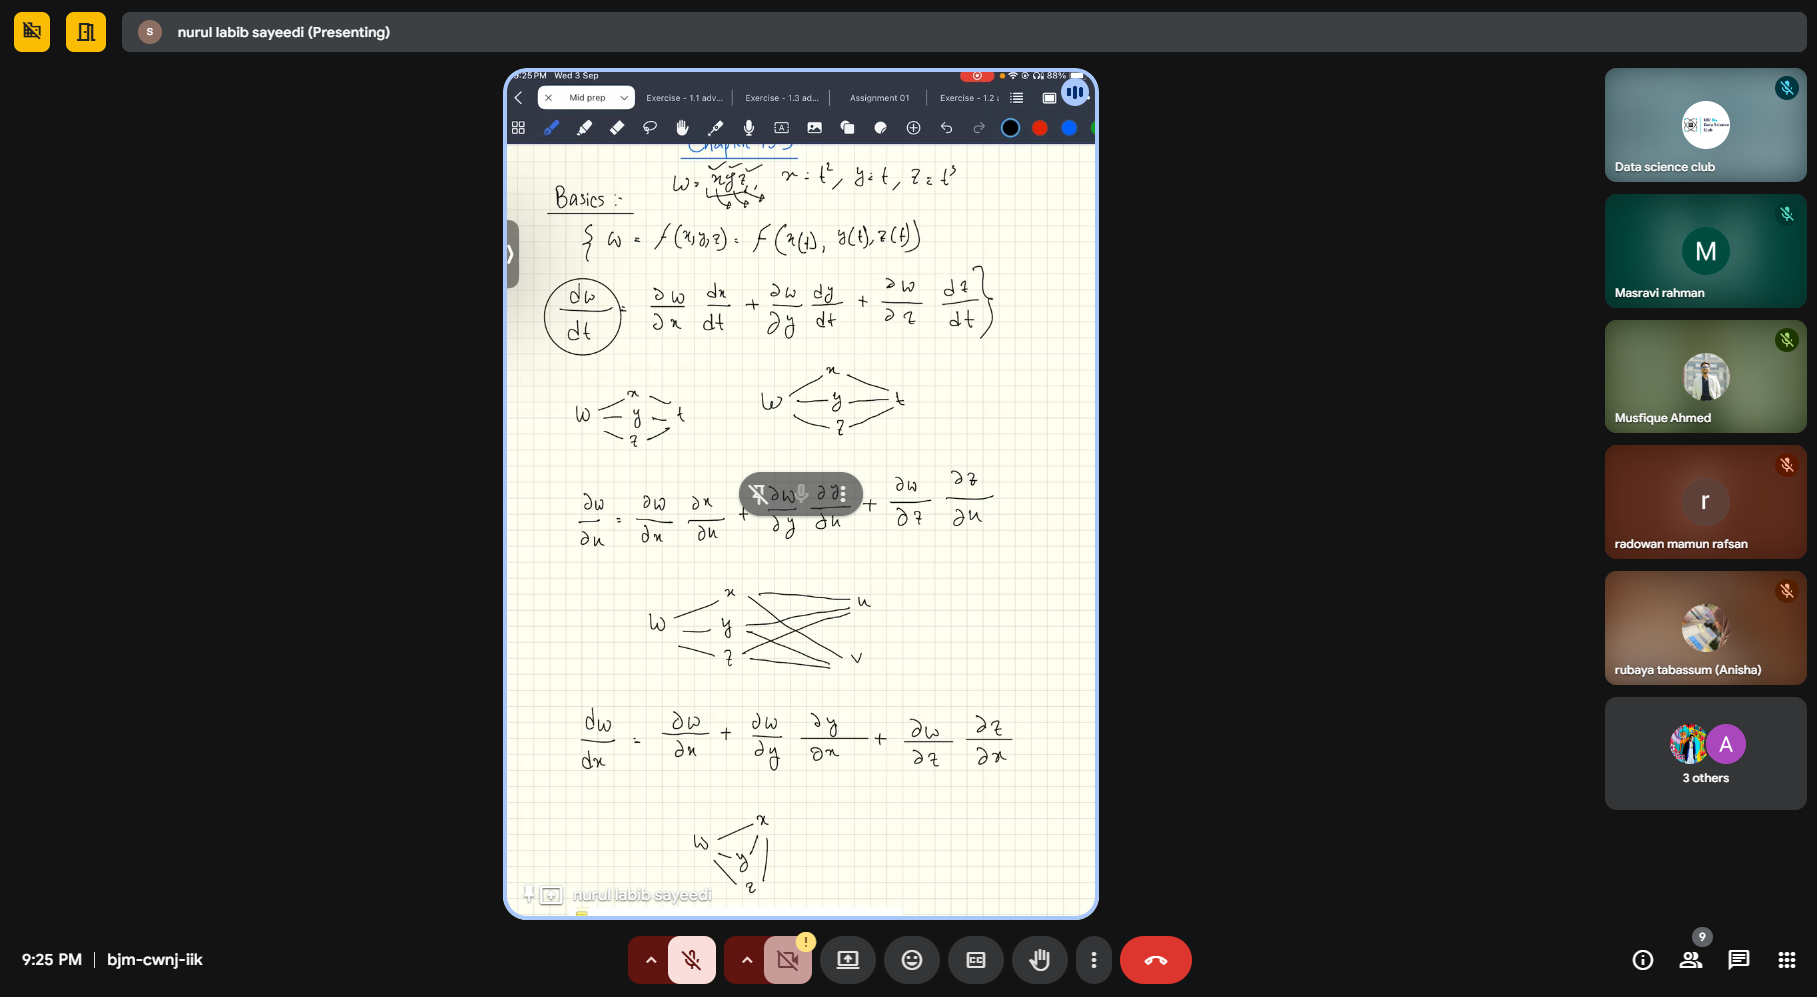 S nurul labib sayeedi (Presenting)
9:25 PM Wed 3 Sep 88%
Mid prep Exercise - 1.1 adv... Exercise - 1.3 ad... Assignment 01 Exercise - 1.2
w = xyz, x = t², y = t, z = t³
Basics :-
{ w = f(x,y,z) = f(x(t), y(t), z(t))
dw/dt = ∂w/∂x dx/dt + ∂w/∂y dy/dt + ∂w/∂z dz/dt }
x x
w y t w y t
z z
∂w/∂u = ∂w/∂x ∂x/∂u + ∂w/∂y ∂y/∂u + ∂w/∂z ∂z/∂u
x u
w y
z v
dw/dx = ∂w/∂x + ∂w/∂y ∂y/∂x + ∂w/∂z ∂z/∂x
x
w
y
z
nurul labib sayeedi
Data science club
M
Masravi rahman
Musfique Ahmed
r
radowan mamun rafsan
rubaya tabassum (Anisha)
A
3 others
9:25 PM bjm-cwnj-iik
CC
9